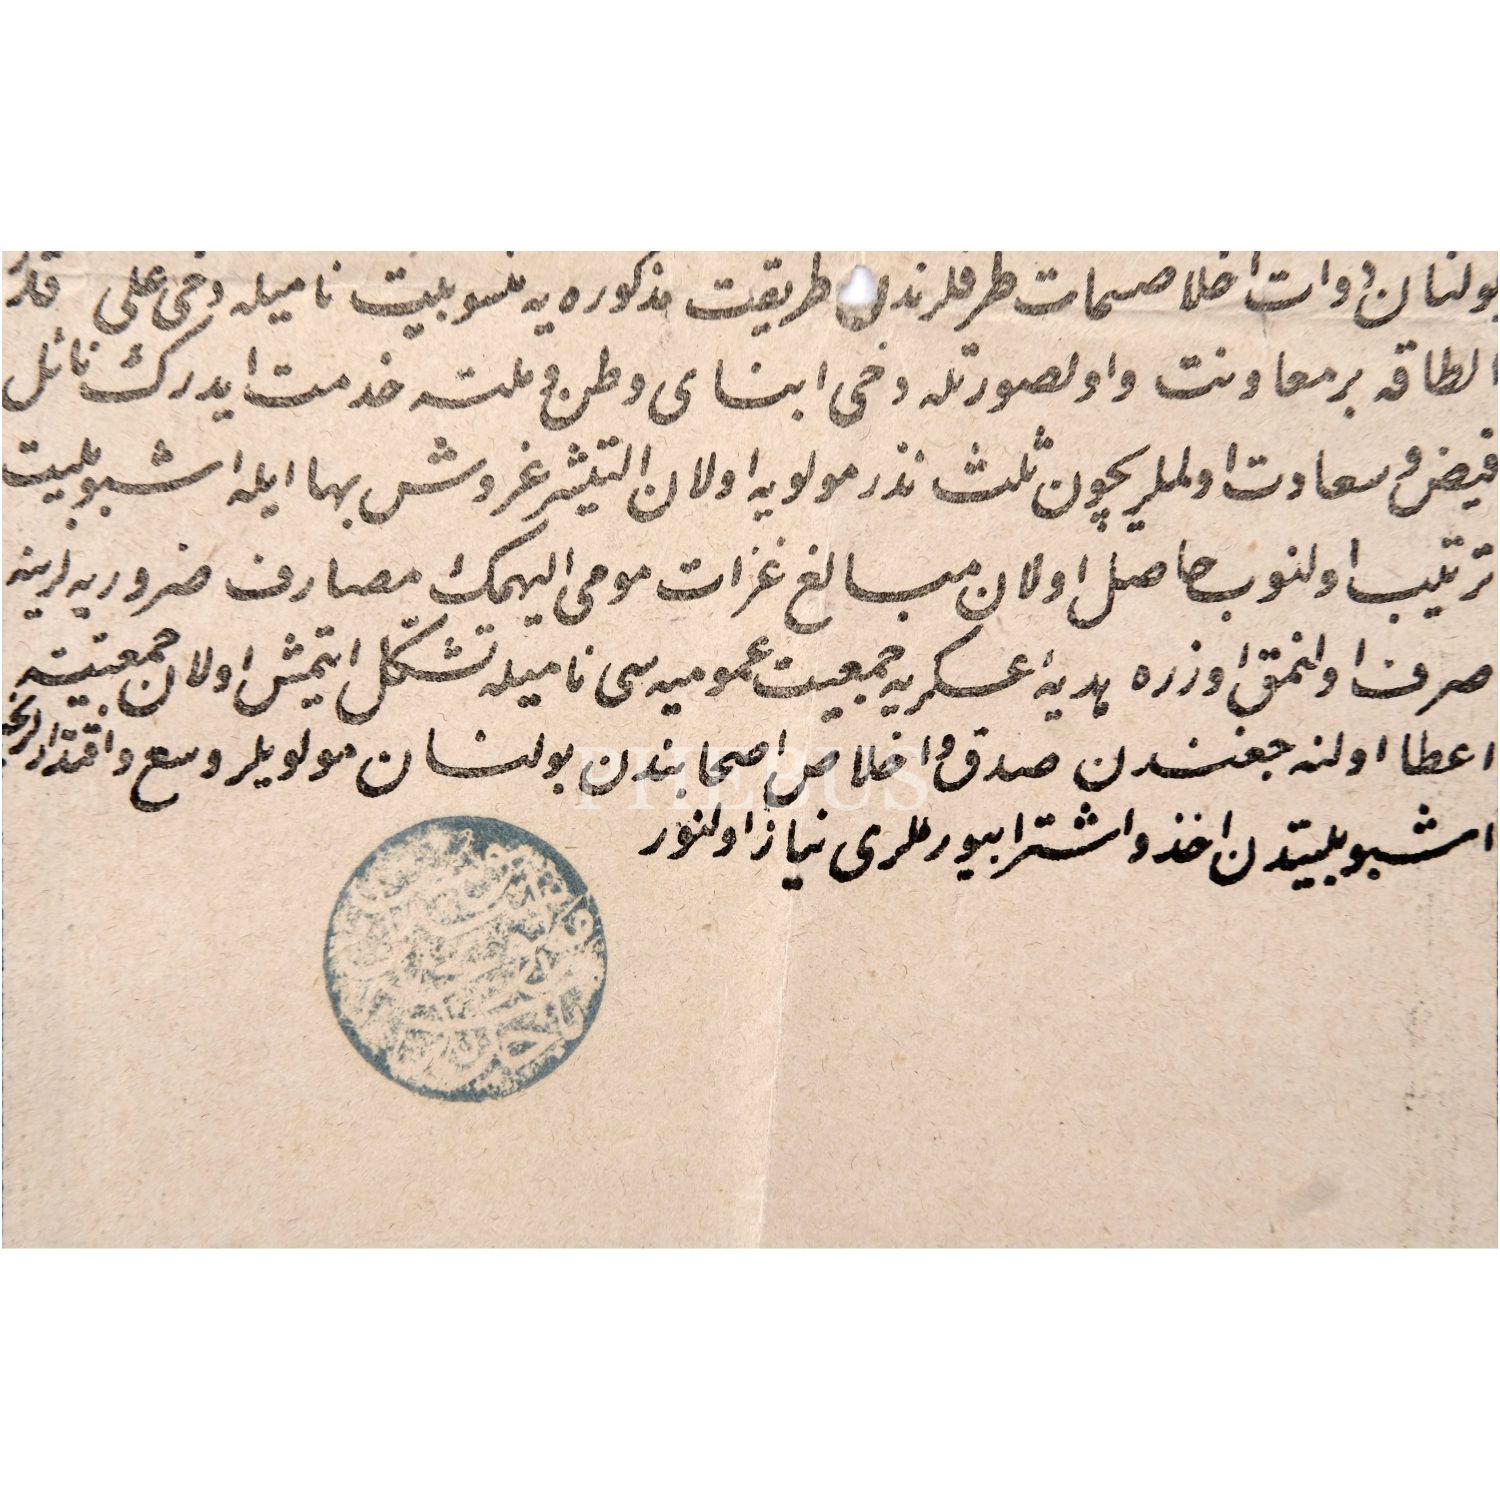 بولنان ذوات اخلاصسمات طرفلرندن طریقت مذکوره یه منسوبیت نامیله دخی علی قدر
الطاقه بر معاونت واولصورتله دخی ابنای وطن و ملته خدمت ایدرک نائل
فیض و سعادت اولملریچون ثلث نذر مولویه اولان التیشر غروش بها ایله اشبو بلیت
ترتیب اولنوب حاصل اولان مبالغ غزات مومی الیهمک مصارف ضروریه لرینه
صرف اولنمق اوزره هدیهٔ عسکریه جمعیت عمومیه سی نامیله تشکل ایتمش اولان جمعیته
اعطا اولنه جغندن صدق و اخلاص اصحابندن بولنسان مولویلر وسع واقتدارلرنجه
اشبو بلیتدن اخذ واشترا بیورملری نیاز اولنور
PHEBUS